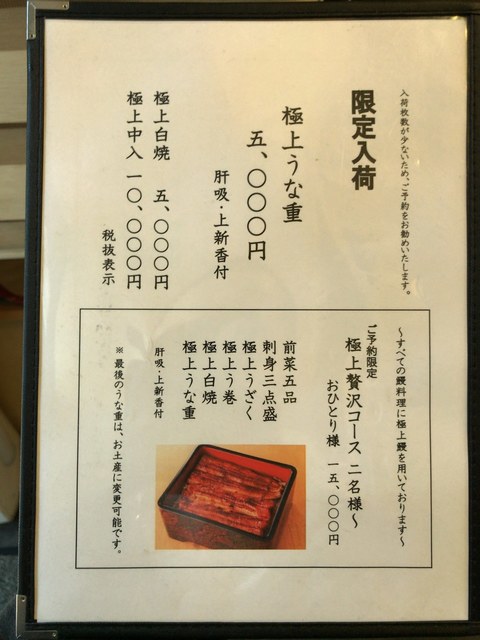 入荷枚数が少ないため、ご予約をお勧めいたします。
限定入荷
極上うな重
五、〇〇〇円
肝吸・上新香付
極上白焼 五、〇〇〇円
極上中入 一〇、〇〇〇円
税抜表示
～すべての鰻料理に極上鰻を用いております～
ご予約限定
極上贅沢コース 二名様～
おひとり様 一五、〇〇〇円
前菜五品
刺身三点盛
極上うざく
極上う巻
極上白焼
極上うな重
肝吸・上新香付
※ 最後のうな重は、お土産に変更可能です。